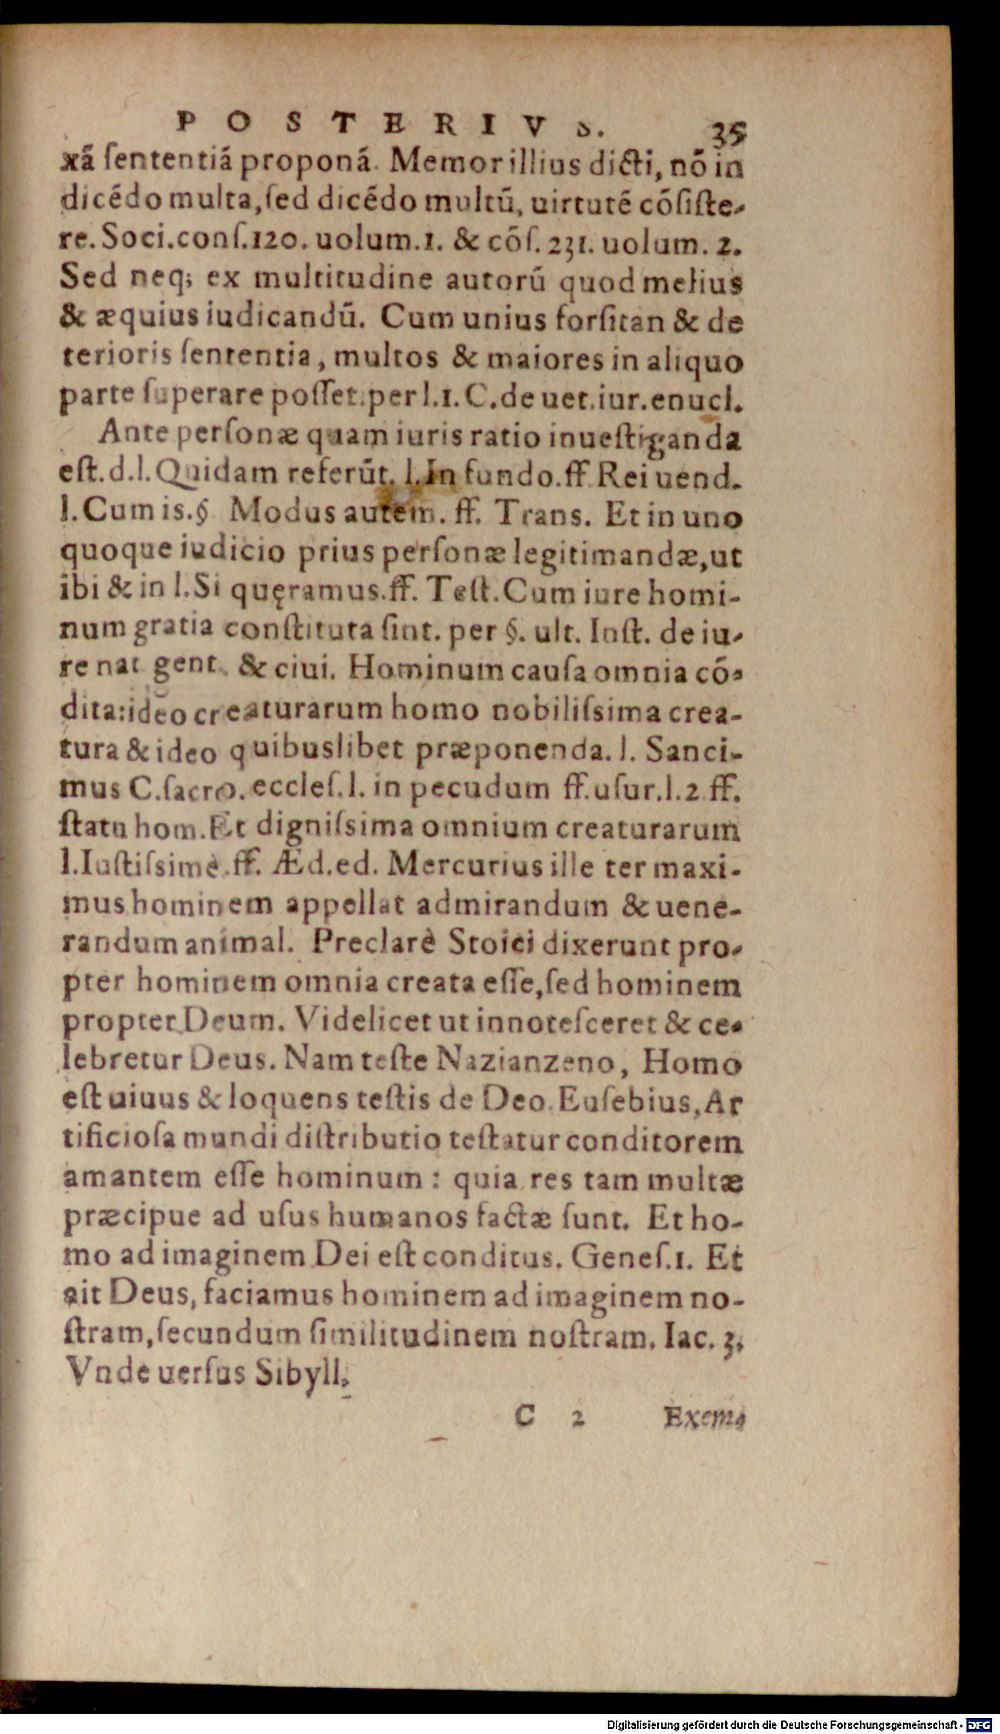 POSTERIVS. 35
xã ſententiã proponã. Memor illius dicti, nõ in
dicẽdo multa, ſed dicẽdo multũ, uirtutẽ cõſiſte-
re. Soci. conſ. 120. uolum. 1. & cõſ. 231. uolum. 2.
Sed neq; ex multitudine autorũ quod melius
& æquius iudicandũ. Cum unius forſitan & de
terioris ſententia, multos & maiores in aliquo
parte ſuperare poſſet. per l. 1. C. de uet. iur. enucl.
Ante perſonæ quam iuris ratio inueſtiganda
eſt. d. l. Quidam referũt. l. In fundo. ff. Rei uend.
l. Cum is. § Modus autem. ff. Trans. Et in uno
quoque iudicio prius perſonæ legitimandæ, ut
ibi & in l. Si quęramus. ff. Teſt. Cum iure homi-
num gratia conſtituta ſint. per §. ult. Inſt. de iu-
re nat gent. & ciui. Hominum cauſa omnia cõ-
dita: ideo creaturarum homo nobiliſsima crea-
tura & ideo quibuslibet præponenda. l. Sanci-
mus C. ſacro. eccleſ. l. in pecudum ff. uſur. l. 2 ff.
ſtatu hom. Et digniſsima omnium creaturarum
l. Iuſtiſsimè. ff. Æd. ed. Mercurius ille ter maxi-
mus hominem appellat admirandum & uene-
randum animal. Preclarè Stoici dixerunt pro-
pter hominem omnia creata eſſe, ſed hominem
propter Deum. Videlicet ut innoteſceret & ce-
lebretur Deus. Nam teſte Nazianzeno, Homo
eſt uiuus & loquens teſtis de Deo. Euſebius, Ar
tificioſa mundi diſtributio teſtatur conditorem
amantem eſſe hominum: quia res tam multæ
præcipue ad uſus humanos factæ ſunt. Et ho-
mo ad imaginem Dei eſt conditus. Geneſ. 1. Et
ait Deus, faciamus hominem ad imaginem no-
ſtram, ſecundum ſimilitudinem noſtram. Iac. 3.
Vnde uerſus Sibyll.
C 2 Exem-
Digitalisierung gefördert durch die Deutsche Forschungsgemeinschaft - DFG